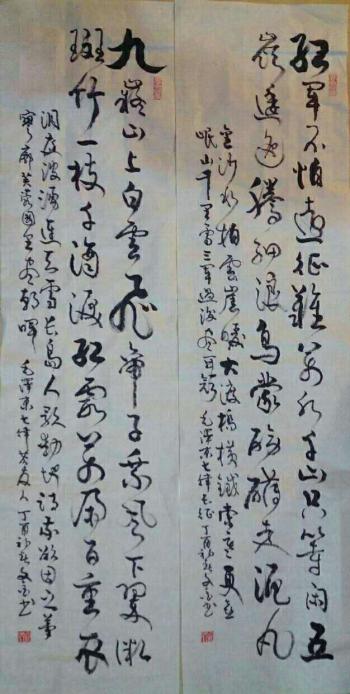 红军不怕远征难万水千山只等闲五
岭逶迤腾细浪乌蒙磅礴走泥丸
金沙水拍云崖暖大渡桥横铁索寒更喜
岷山千里雪三军过后尽开颜 毛泽东七律长征 丁酉初秋 书
九嶷山上白云飞帝子乘风下翠微
斑竹一枝千滴泪红霞万朵百重衣
洞庭波涌连天雪长岛人歌动地诗我欲因之梦
寥廓芙蓉国里尽朝晖 毛泽东七律答友人 丁酉初秋 书